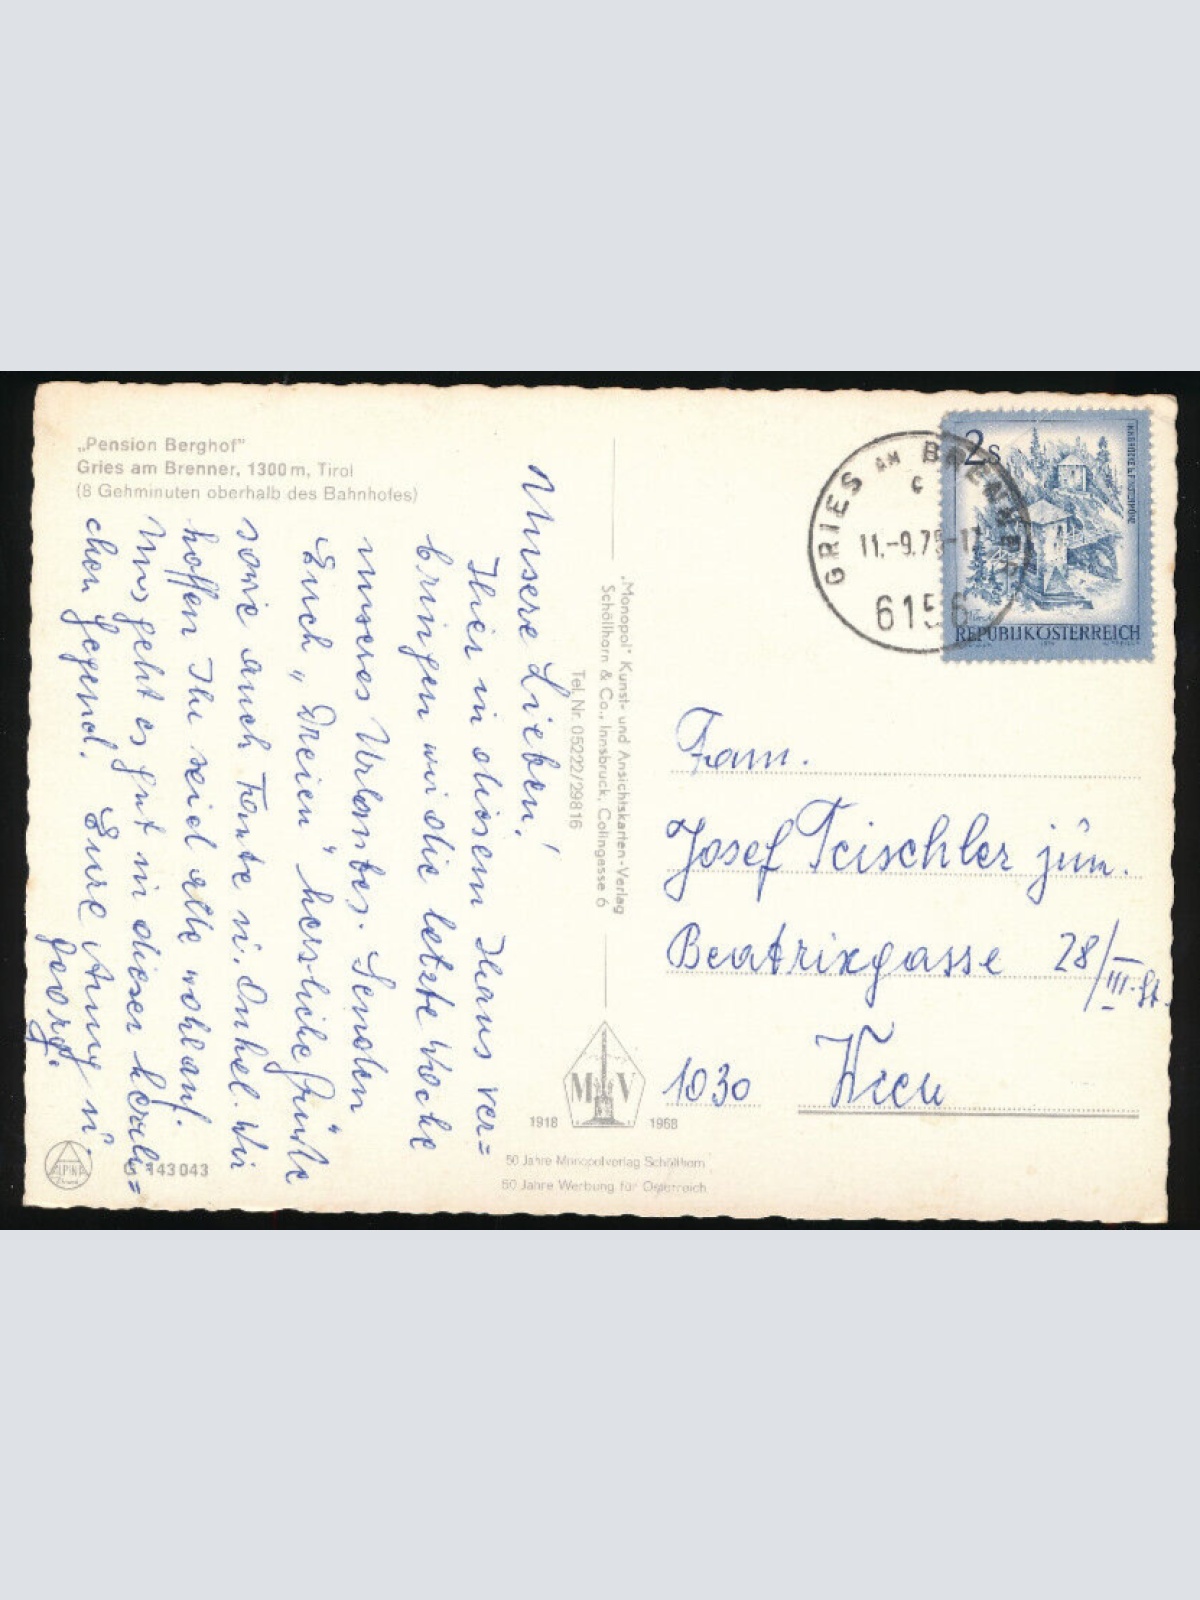 „Pension Berghof"
Gries am Brenner, 1300 m, Tirol
(8 Gehminuten oberhalb des Bahnhofes)
Unsere Lieben!
Hier in diesem Haus ver=
bringen wir die letzte Woche
unseres Urlaubes. Senden
Euch „Dreien" herzliche Grüße
sowie auch Tante u. Onkel. Wir
hoffen Ihr seid alle wohlauf.
Uns geht es gut in dieser herrli=
chen Gegend. Eure Anny u.
Georg.
„Monopol" Kunst- und Ansichtskarten-Verlag
Schöllhorn & Co., Innsbruck, Colingasse 6
Tel. Nr. 05222/29816
MV
1918 1968
50 Jahre Monopolverlag Schöllhorn
50 Jahre Werbung für Österreich
ALPINA
143043
GRIES AM BRENNER
c
11.-9.75-17
6156
2s
REPUBLIK ÖSTERREICH
Fam.
Josef Teischler jun.
Beatrixgasse 28/III. St.
1030 Wien